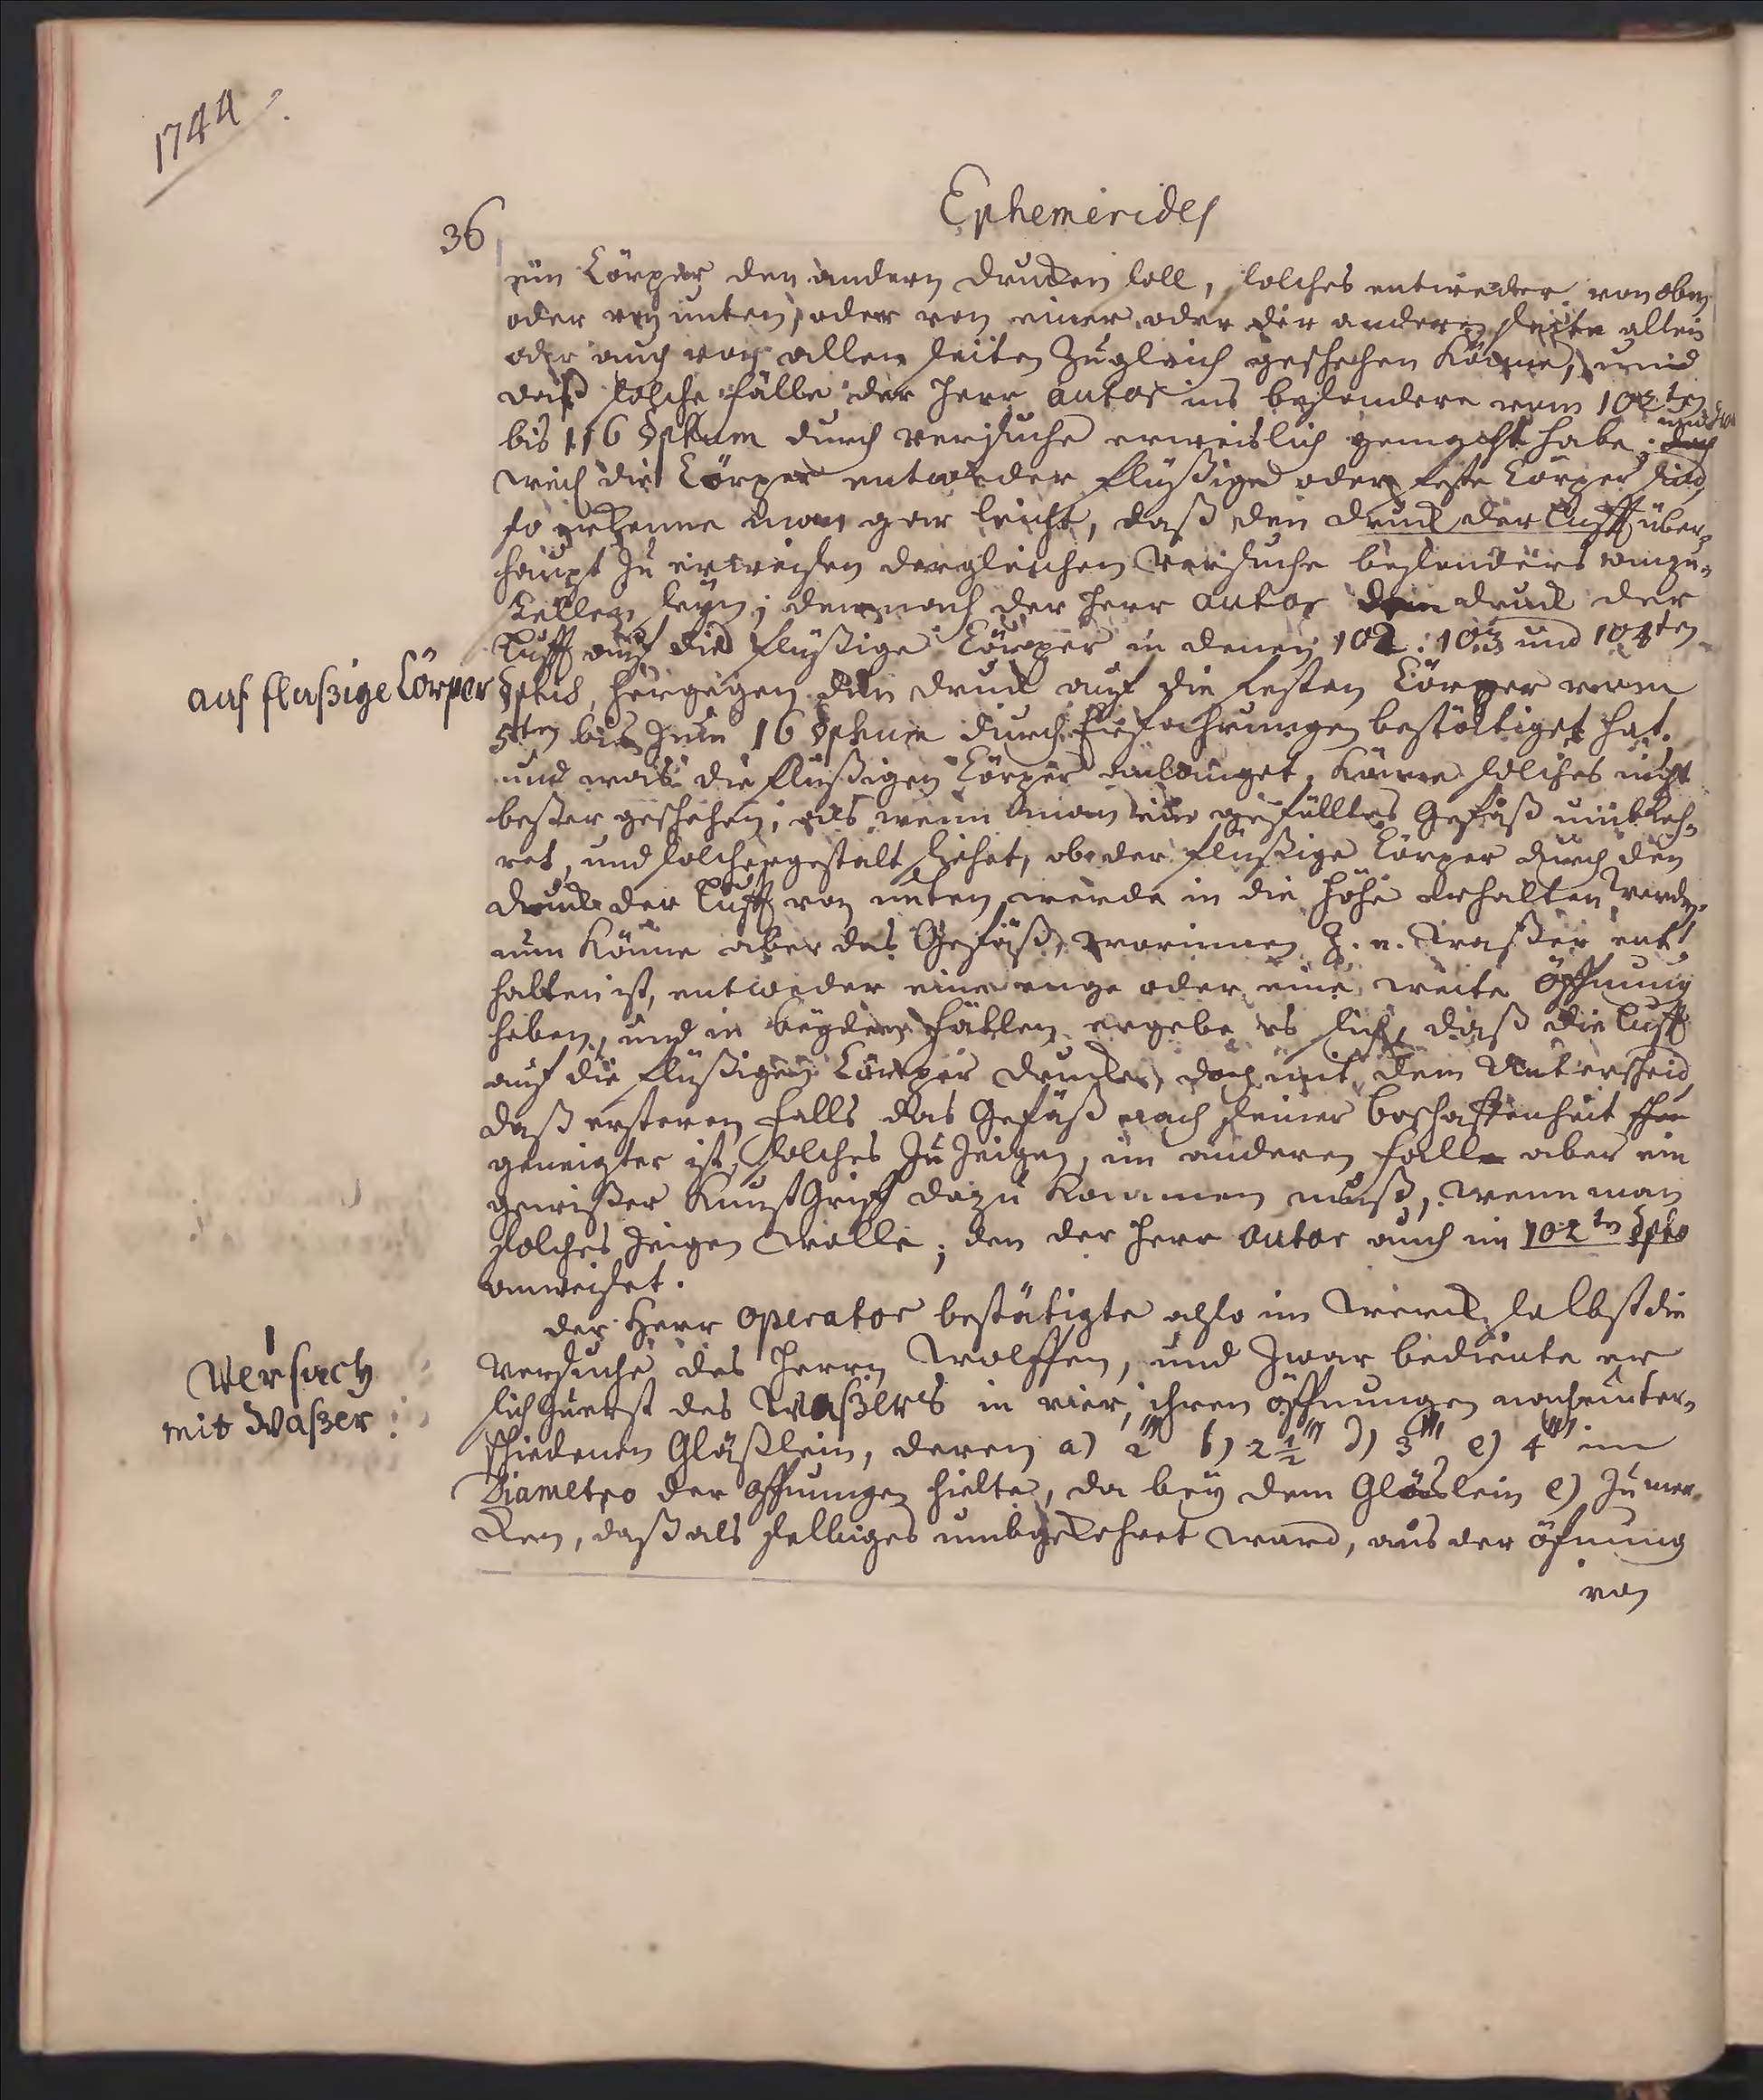 1744.
36
Ephemerides
ein Cörper den andern drucken soll, solches entweder von oben
oder von unten, oder von einer oder der andern seite allein
oder auch von allen seiten zugleich geschehen könne, und
daß solche fälle der Herr autor ins besondere vom 102ten
bis 116 §phum durch versuche erweislich gemacht habe;
weil die Cörper entweder flüßige oder feste Cörper sind,
so erkenne man gar leicht, daß den druck der Lufft über-
haupt zu erweisen dergleichen Versuche besonders anzu-
stellen seyn; demnach der Herr autor den druck der
Lufft auf die flüßige Cörper in denen 102. 103 und 104ten
auf flüßige Cörper
§phis, hergegen den druck auf die festen Cörper vom
5ten bis zum 16 §phum durch Erfahrungen bestättiget hat.
und was die flüßigen Cörper anlanget, könne solches nicht
beßer geschehen, als wenn man ein gefülltes Gefäß umbkeh-
ret, und solchergestalt siehet, ob der flüßige Cörper durch den
druck der Lufft von unten werde in die Höhe erhalten werden.
nun könne aber das Gefäß, worinnen z. e. Waßer ent-
halten ist, entweder eine enge oder eine weite Öffnung
haben, und in beyden Fällen ergebe es sich, daß die Lufft
auf die flüßigen Cörper drucke, doch mit dem Unterscheid,
daß ersteren falls das Gefäß nach seiner beschaffenheit
geneigter ist, solches zu zeigen, im anderen falle aber ein
gewißer Kunst Griff dazu kommen muß, wenn man
solches zeigen wolle; den der Herr autor auch im 102ten §pho
anweiset.
der Herr operator bestätigte also im Werck selbst die
Versuch
mit Waßer
versuche des Herrn Wolffen, und zwar bediente er
sich zuerst des Waßers in vier, ihren öffnungen nach unter-
schiedenen Gläßlein, deren a) 2''' b) 2½''' d) 3''' e) 4''' im
Diametro der öffnungen hielte, da bey dem Gläslein e) zu mer-
cken, daß als selbiges umbgekehret ward, aus der öfnung
von